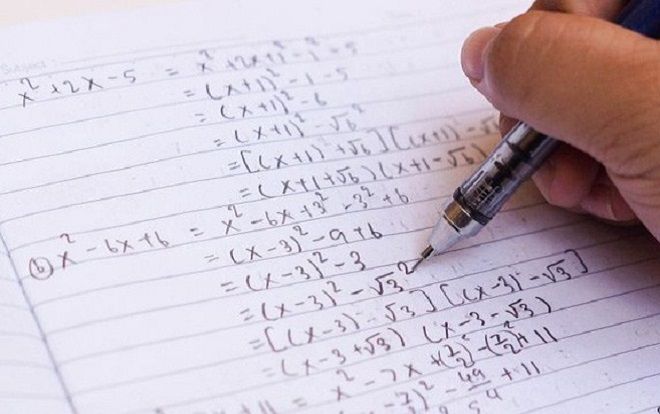 x² + 2x - 5 = x² + 2x + 1² - 1² - 5
= (x+1)² - 1 - 5
= (x+1)² - 6
= (x+1)² - √6²
= [(x+1) + √6] [(x+1) - √6
= (x+1+√6) (x+1-√6)
(b) x² - 6x + 6 = x² - 6x + 3² - 3² + 6
= (x-3)² - 9 + 6
= (x-3)² - 3
= (x-3)² - √3²
= [(x-3) - √3] [(x-3) - √3]
= (x-3+√3) (x-3-√3)
+ 11 = x² - 7x + (7/2)² - (7/2)² + 11
)² - 49/4 + 11